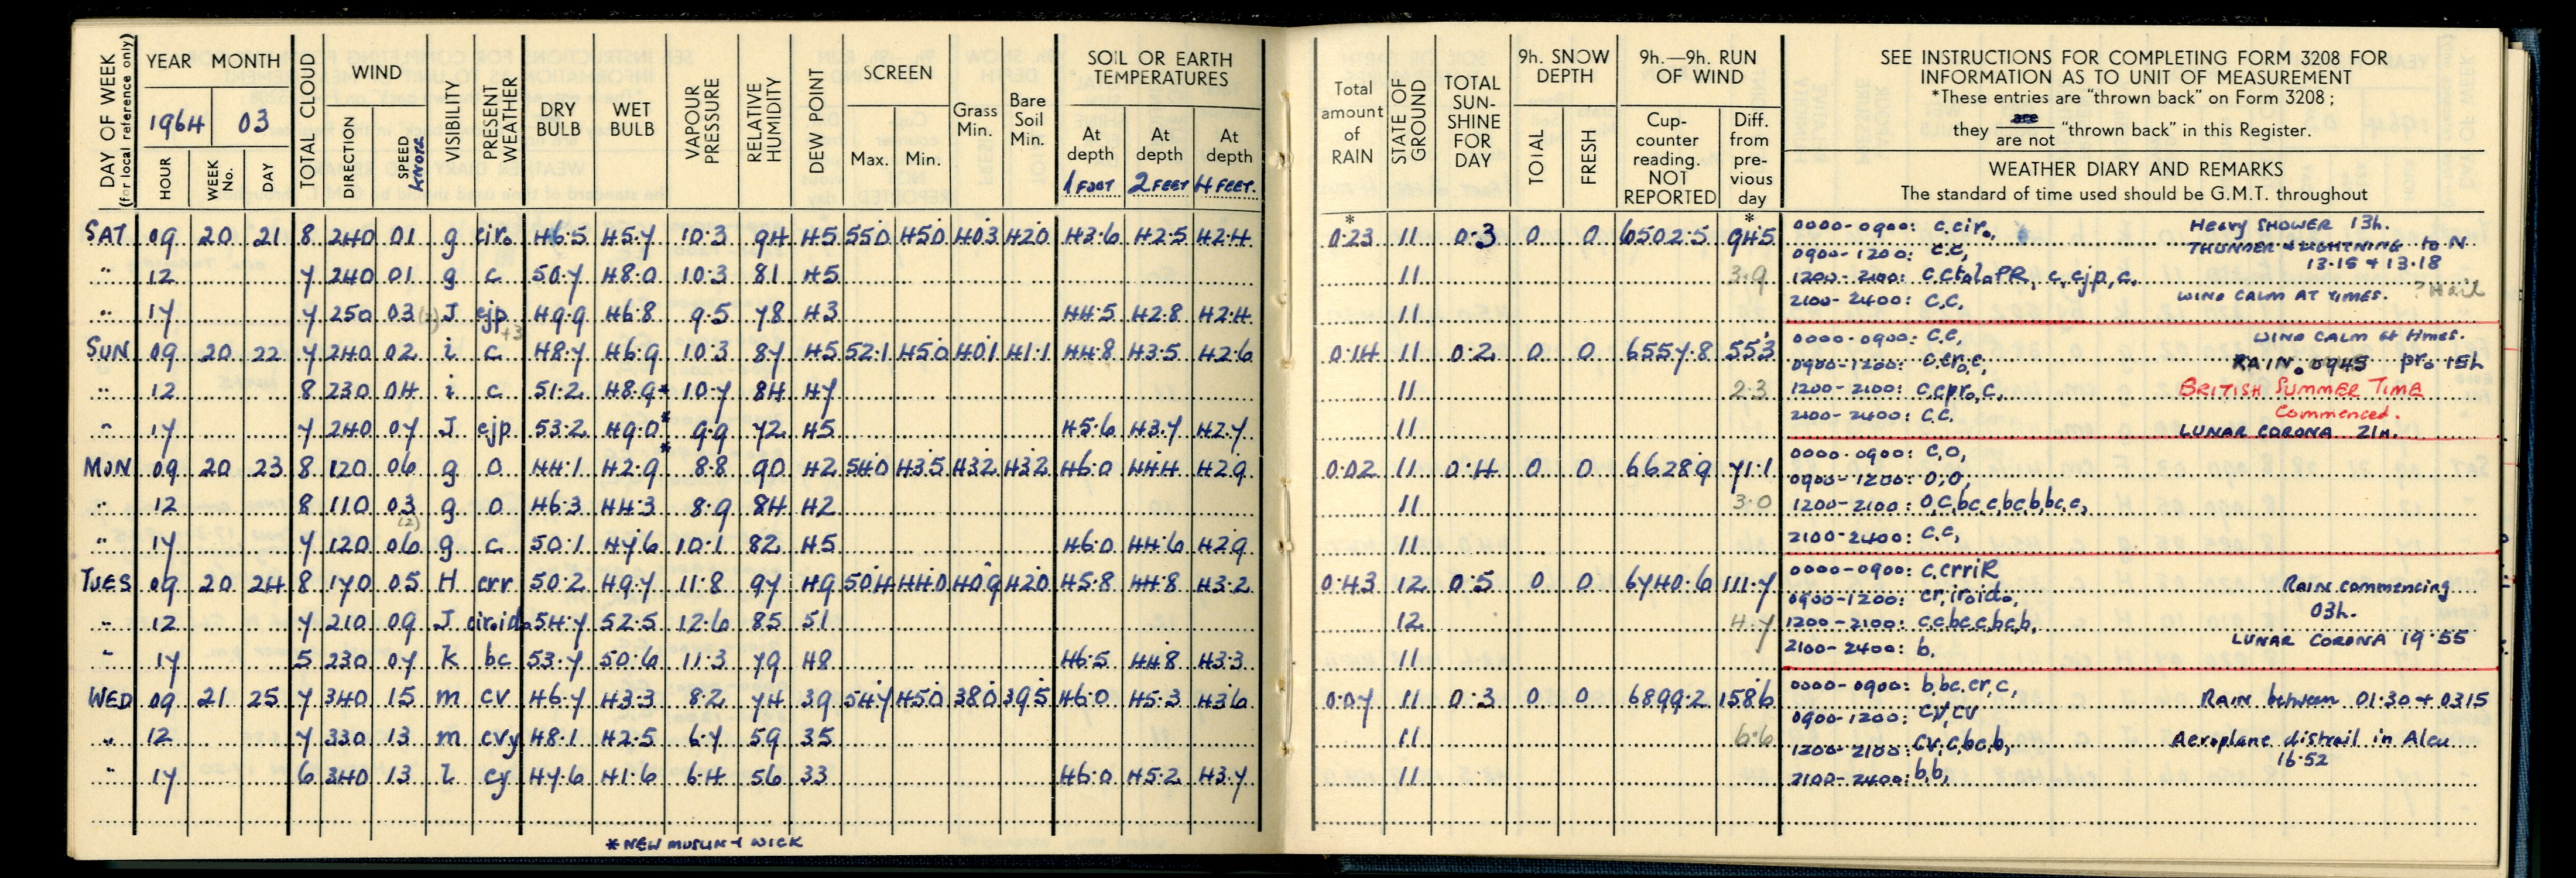 DAY OF WEEK (for local reference only)
YEAR MONTH
1964 03
HOUR WEEK No. DAY
TOTAL CLOUD
WIND
DIRECTION SPEED KNOTS
VISIBILITY
PRESENT WEATHER
DRY BULB
WET BULB
VAPOUR PRESSURE
RELATIVE HUMIDITY
DEW POINT
SCREEN
Max. Min.
Grass Min.
Bare Soil Min.
SOIL OR EARTH TEMPERATURES
At depth 1 FOOT
At depth 2 FEET
At depth 4 FEET.
Total amount of RAIN
STATE OF GROUND
TOTAL SUN-SHINE FOR DAY
9h. SNOW DEPTH
TOTAL FRESH
9h.—9h. RUN OF WIND
Cup-counter reading. NOT REPORTED
Diff. from pre-vious day
SEE INSTRUCTIONS FOR COMPLETING FORM 3208 FOR
INFORMATION AS TO UNIT OF MEASUREMENT
*These entries are "thrown back" on Form 3208 ;
they are / are not "thrown back" in this Register.
WEATHER DIARY AND REMARKS
The standard of time used should be G.M.T. throughout
* *
SAT 09 20 21 8 240 01 g cir₀ 46.5 45.7 10.3 94 45 55.0 45.0 40.3 42.0 43.6 42.5 42.4 0.23 11 0.3 0 0 6502.5 94.5
" 12 7 240 01 g c 50.7 48.0 10.3 81 45 11 3.9
" 17 7 250 03 J cjp 49.9 46.8 9.5 78 43 44.5 42.8 42.4 11
SUN 09 20 22 7 240 02 i c 48.7 46.9 10.3 87 45 52.1 45.0 40.1 41.1 44.8 43.5 42.6 0.14 11 0.2 0 0 6557.8 55.3
" 12 8 230 04 i c 51.2 48.9* 10.7 84 47 11 2.3
" 17 7 240 07 J cjp 53.2 49.0* 9.9 72 45 45.6 43.7 42.7 11
MON 09 20 23 8 120 06 g o 44.1 42.9* 8.8 90 42 54.0 43.5 43.2 43.2 46.0 44.4 42.9 0.02 11 0.4 0 0 6628.9 71.1
" 12 8 110 03 g o 46.3 44.3 8.9 84 42 11 3.0
" 17 7 120 06 (2) g c 50.1 47.6 10.1 82 45 46.0 44.6 42.9 11
TUES 09 20 24 8 170 05 H crr 50.2 49.7 11.8 97 49 50.4 44.0 40.9 42.0 45.8 44.8 43.2 0.43 12 0.5 0 0 6740.6 111.7
" 12 7 210 09 J cir₀id₀ 54.7 52.5 12.6 85 51 12 4.7
" 17 5 230 07 k bc 53.7 50.6 11.3 79 48 46.5 44.8 43.3 11
WED 09 21 25 7 340 15 m cv 46.7 43.3 8.2 74 39 54.7 45.0 38.0 39.5 46.0 45.3 43.6 0.07 11 0.3 0 0 6899.2 158.6
" 12 7 330 13 m cvy 48.1 42.5 6.7 59 35 11 6.6
" 17 6 340 13 l cy 47.6 41.6 6.4 56 33 46.0 45.2 43.7 11
* NEW MUSLIN & WICK
0000-0900: c,cir₀, HEAVY SHOWER 13h.
0900-1200: c,c, THUNDER & LIGHTNING to N
13.15 & 13.18
1200-2100: c,cjp,c,
2100-2400: c,c, WIND CALM AT TIMES. ?Hail
0000-0900: c,c, WIND CALM at times.
0900-1200: c,cr₀,c, RAIN₀ 0945 pr₀ 15h
1200-2100: c,cpr₀,c, BRITISH SUMMER TIME
2100-2400: c,c. Commenced.
LUNAR CORONA 21H.
0000-0900: c,o,
0900-1200: o,o,
1200-2100: o,c,bc,c,bc,b,bc,c,
2100-2400: c,c,
0000-0900: c,crriR Rain commencing
0900-1200: cr,ir₀id₀, 03h.
1200-2100: c,c,bc,c,bc,b, LUNAR CORONA 19.55
2100-2400: b.
0000-0900: b,bc,cr,c, RAIN between 01:30 & 0315
0900-1200: cv,cv
1200-2100: cv,c,bc,b, Aeroplane distrail in Alcu
16.52
2100-2400: b,b,